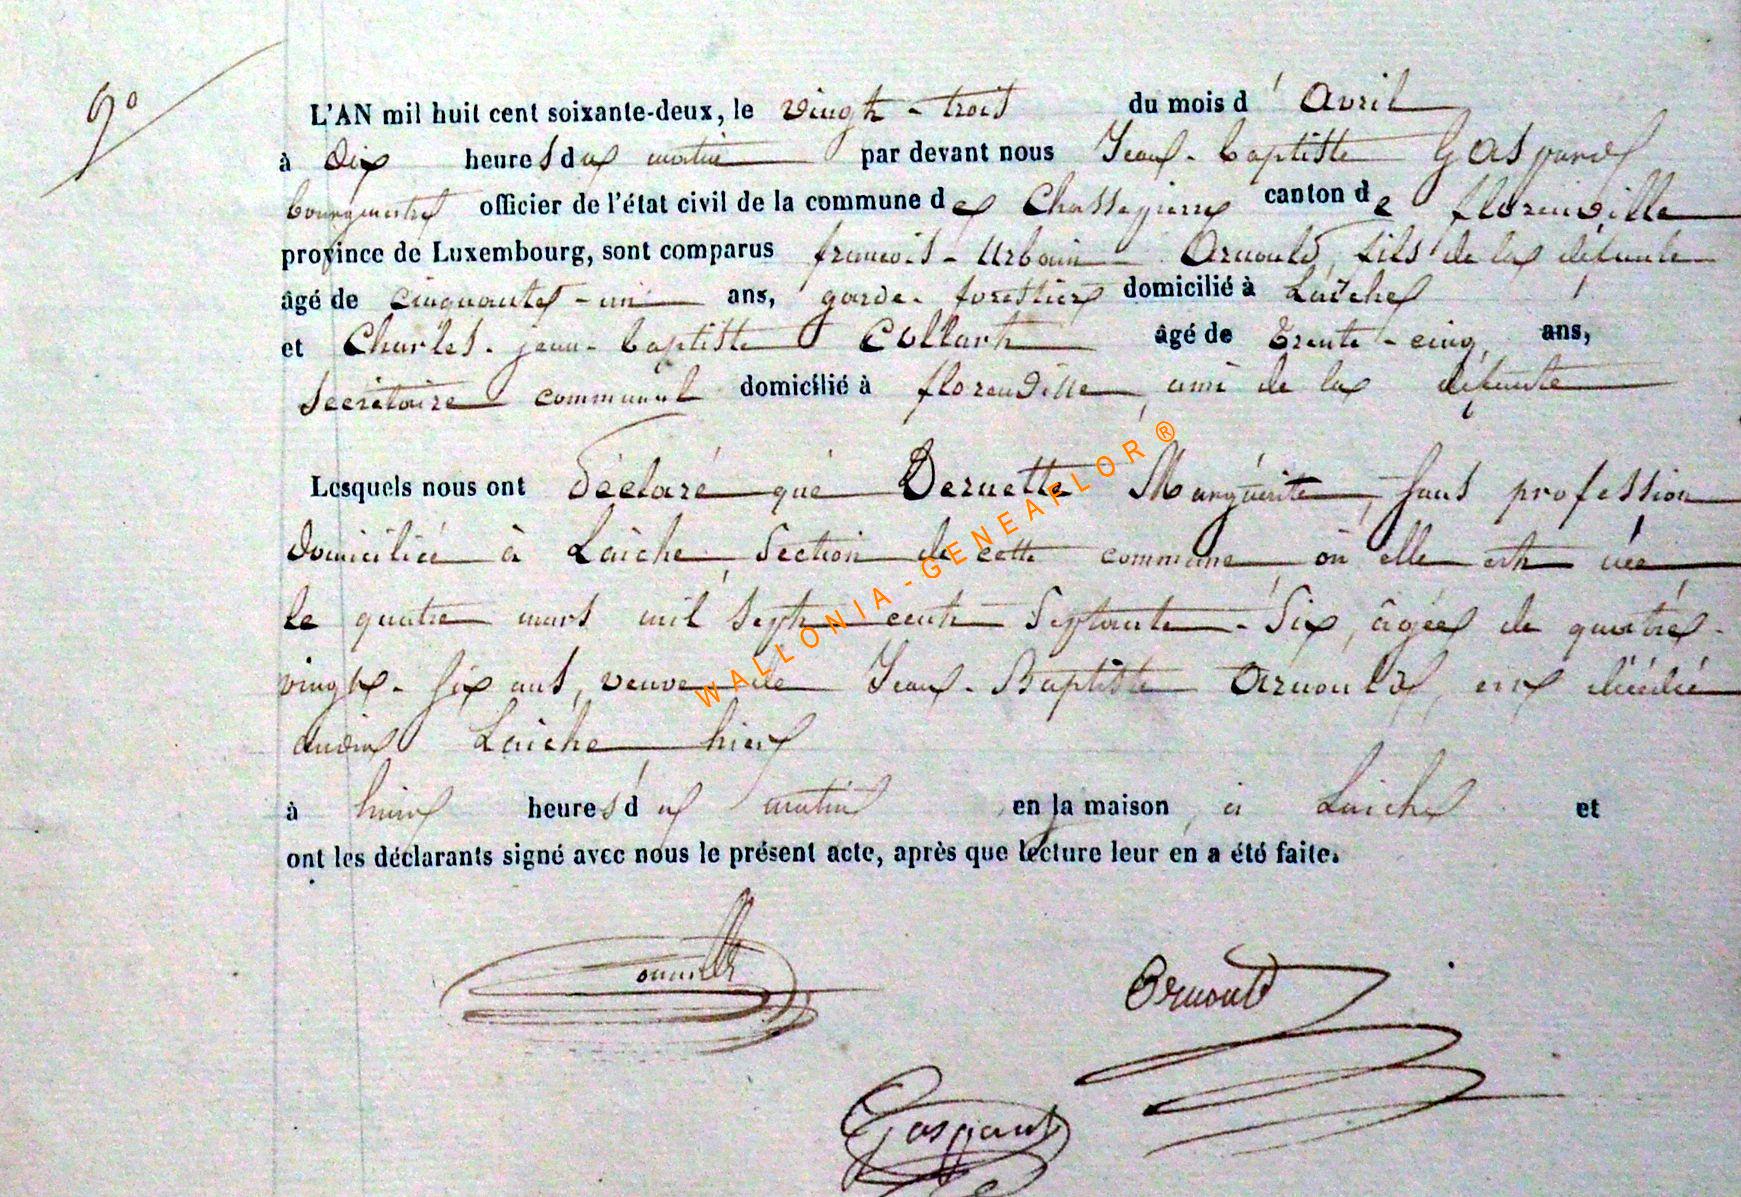 9°
L'AN mil huit cent soixante-deux, le vingt-trois du mois d'Avril
à dix heures du matin par devant nous Jean-baptiste Gaspard
bourgmestre officier de l'état civil de la commune de Chassepierre canton de florenville
province de Luxembourg, sont comparus francois-Urbain Arnould, fils de la défunte
âgé de cinquante-un ans, garde-forestier domicilié à Laiche
et Charles-jean-baptiste Collart âgé de trente-cinq ans,
Secrétaire communal domicilié à florenville, ami de la défunte
Lesquels nous ont déclaré que Dernette Marguerite, sans profession
domiciliée à Laiche, Section de cette commune où elle est née
le quatre mars mil Sept cent Septante-Six, âgée de quatre-
vingt-Six ans, veuve de Jean-Baptiste Arnould, est décédée
audit Laiche hier
à heures du matin en la maison, à Laiche et
ont les déclarants signé avec nous le présent acte, après que lecture leur en a été faite.
Arnould
Gaspard
WALLONIA-GENEAFLOR®